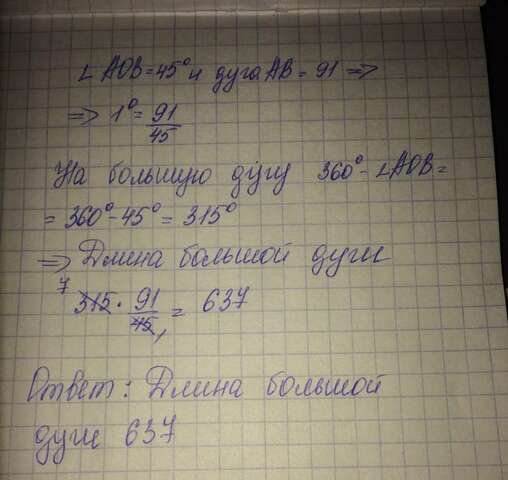 ∠AOB=45° и дуга AB = 91 =>
=> 1° = 91/45
На большую дугу 360°-∠AOB=
= 360°-45° = 315°
=> Длина большой дуги
7
315 · 91/45 = 637
1
Ответ: Длина большой
дуги 637